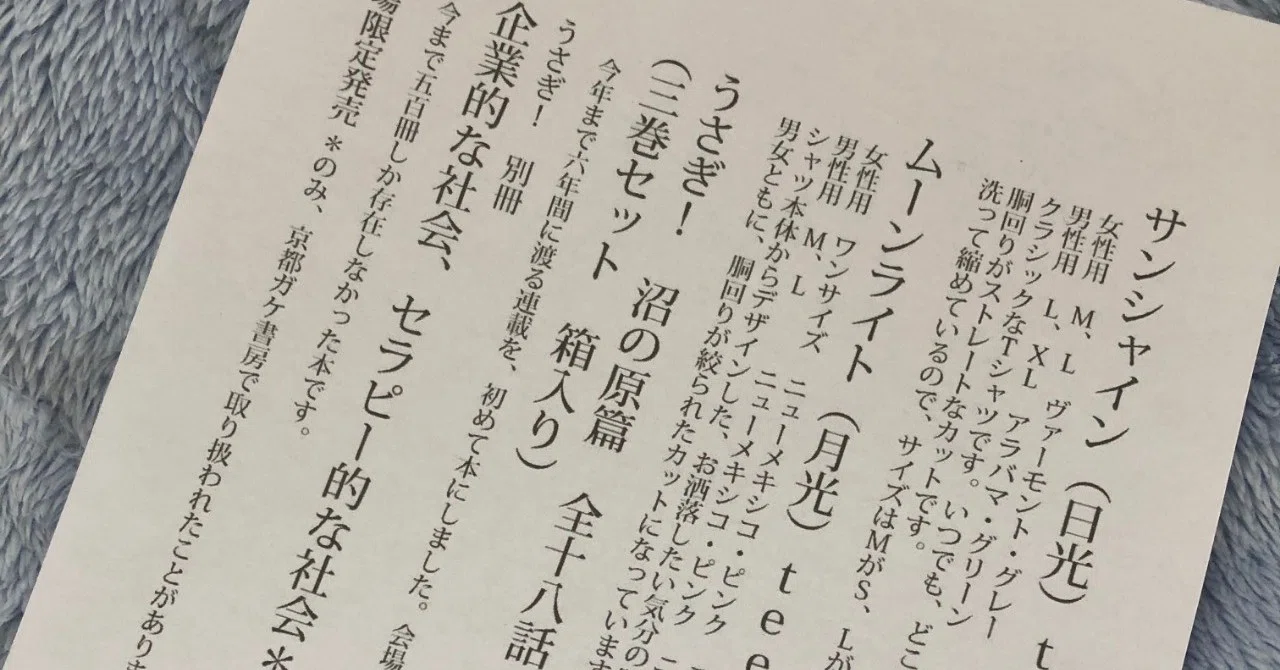 サンシャイン（日光）t
女性用　M、L　ヴァーモント・グレー
男性用　L、XL　アラバマ・グリーン
クラシックなTシャツです。いつでも、どこ
胴回りがストレートなカットです。
洗って縮めているので、サイズはMがS、Lが
ムーンライト（月光）tee
女性用　ワンサイズ　ニューメキシコ・ピンク
男性用　M、L　ニューメキシコ・ピンク
シャツ本体からデザインした、お洒落したい気分の
男女ともに、胴回りが絞られたカットになっています
うさぎ！　沼の原篇
（三巻セット　箱入り）全十八話
今年まで六年間に渡る連載を、初めて本にしました。会場
うさぎ！　別冊
企業的な社会、セラピー的な社会＊
今まで五百冊しか存在しなかった本です。
場限定発売　＊のみ、京都ガケ書房で取り扱われたことがあり